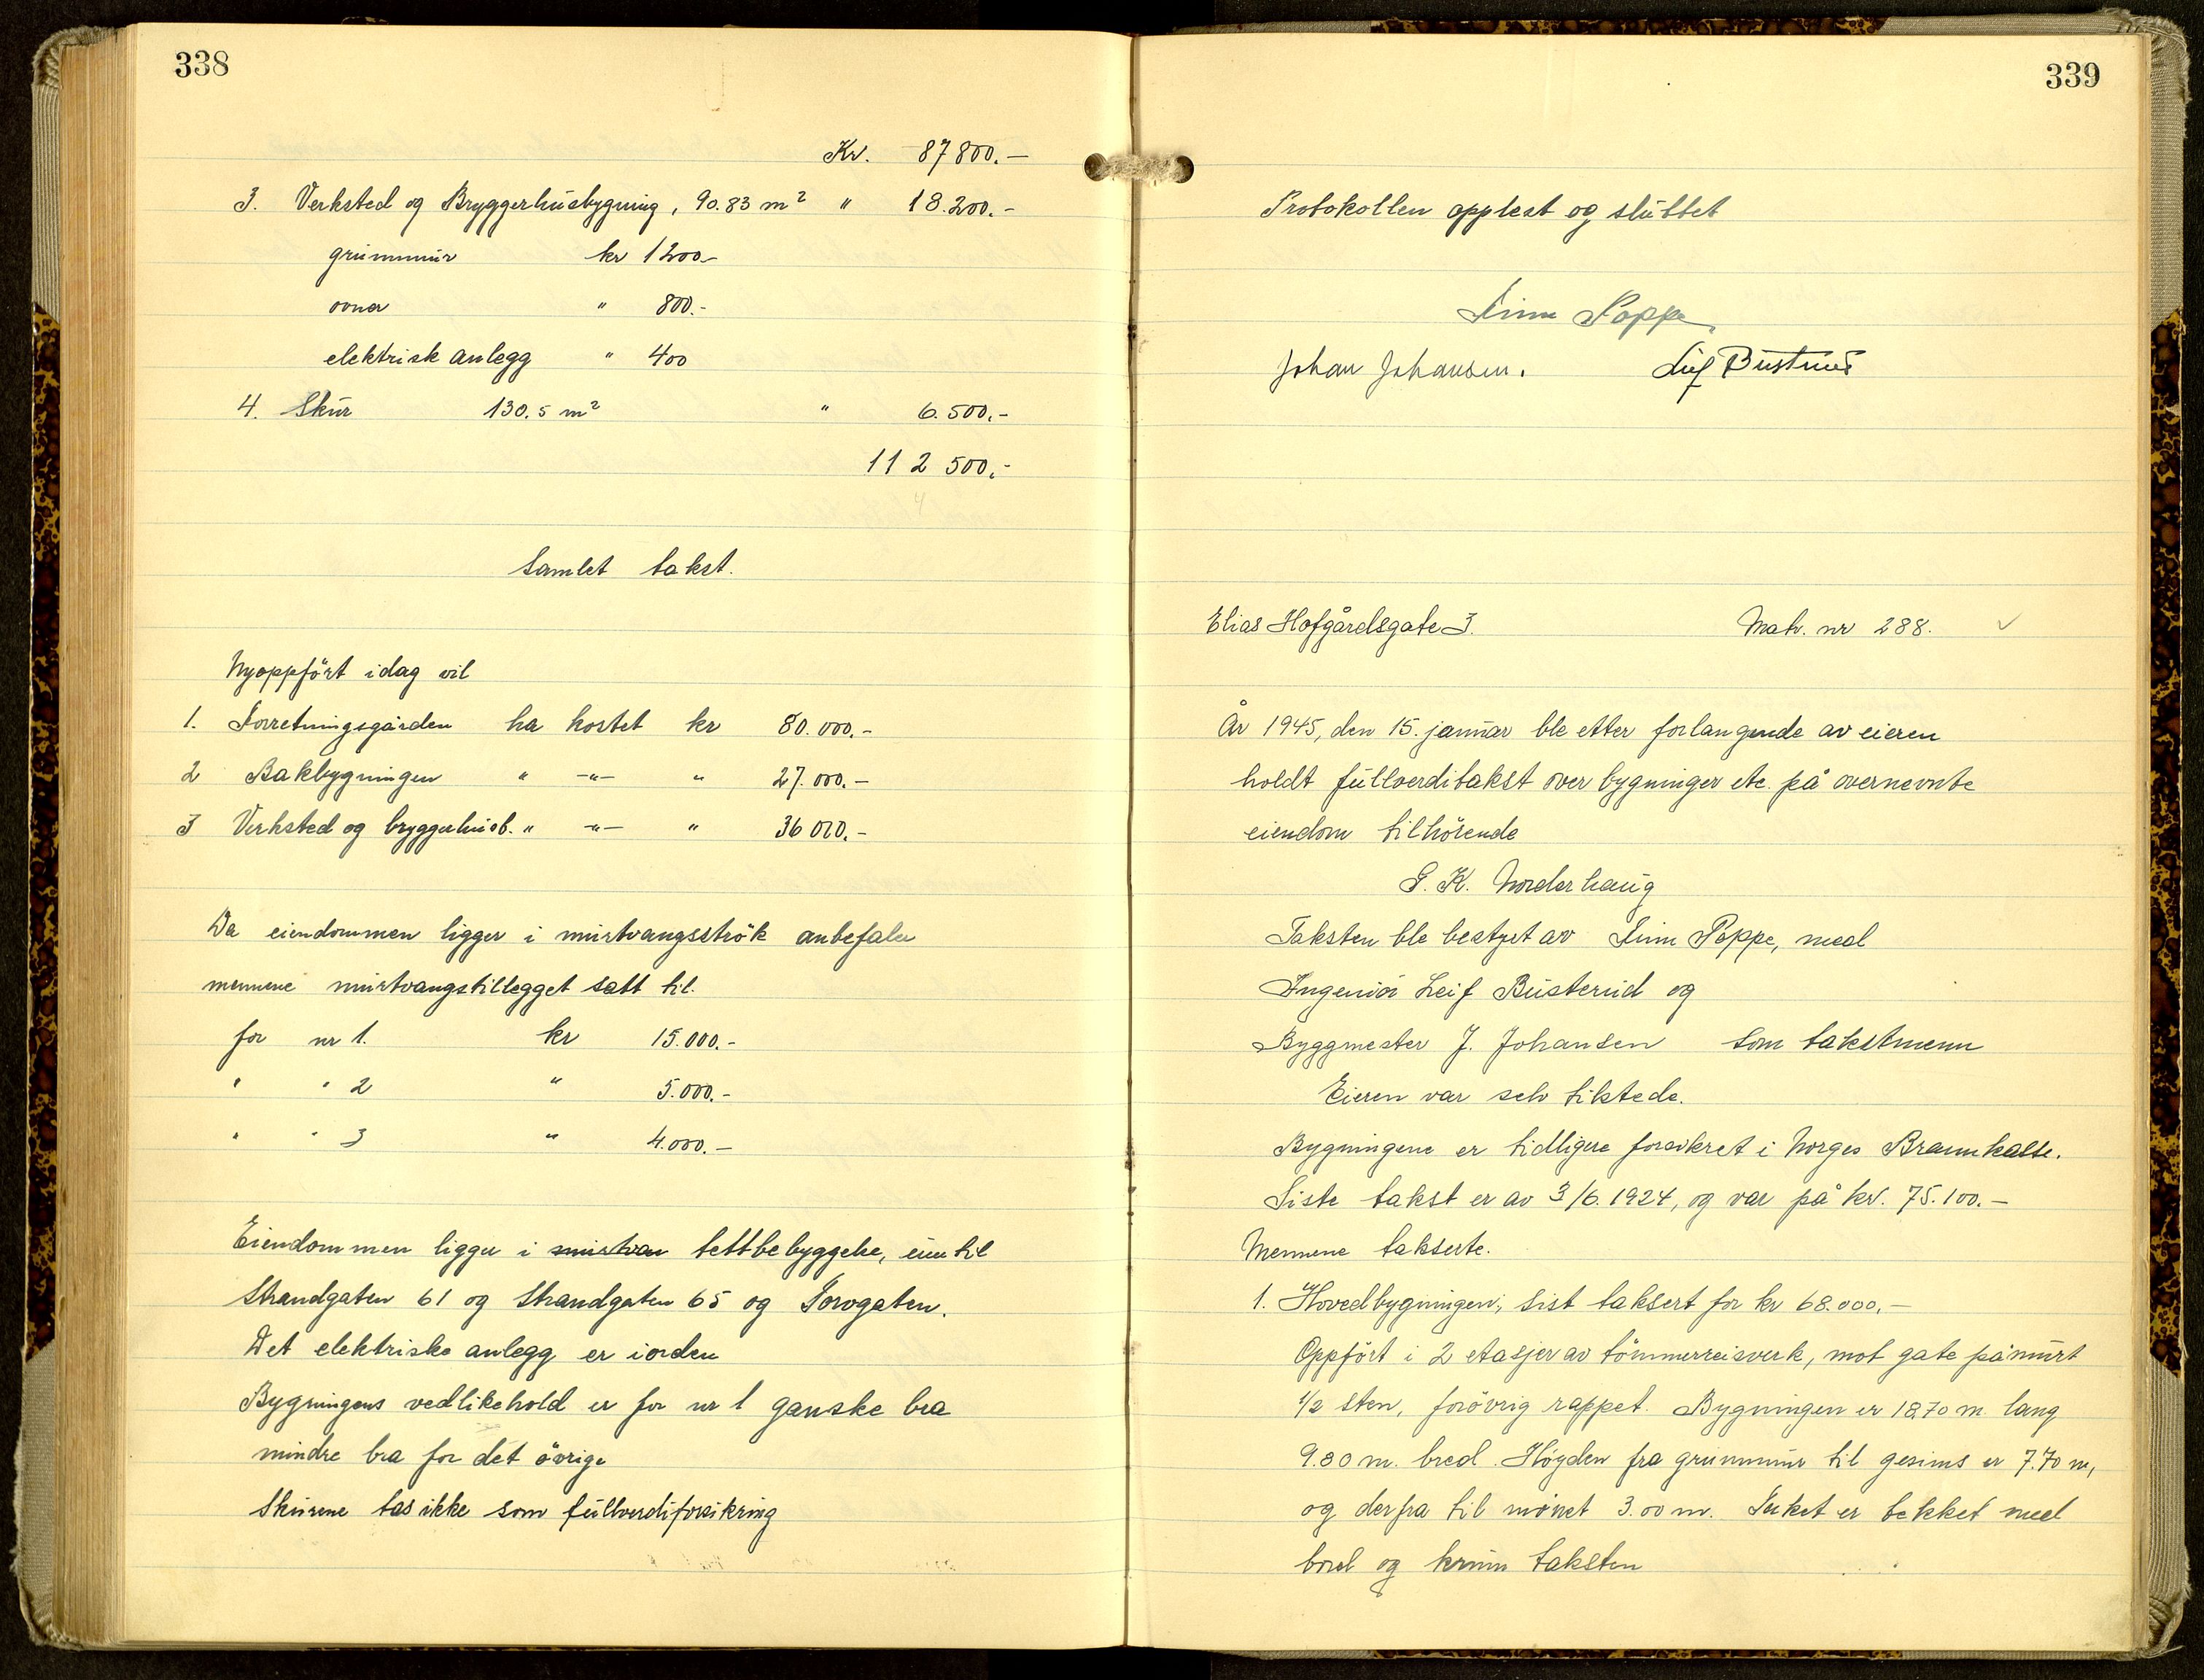 338
Kr. 87800.—
3. Verksted og Bryggerhusbygning, 90.83 m² " 18.200.-
grunnmur kr 1200-
ovner " 800.-
elektrisk anlegg " 400
4. Skur 130.5 m² " 6.500.-
112 500.-
4
Samlet takst.
Nyoppfört idag vil
1. Forretningsgården ha kostet kr 80.000.-
2 Bakbygningen " -"- " 27.000.-
3 Verksted og bryggerhusb. " -"- " 36000.-
Da eiendommen ligger i murtvangsströk anbefaler
mennene murtvangstillegget satt til.
for nr 1. kr 15.000.-
" " 2 " 5.000.-
" " 3 " 4.000.-
Eiendommen ligger i murtvan tettbebyggelse, inn til
Strandgaten 61 og Strandgaten 65 og Torvgaten.
Det elektriske anlegg er iorden
Bygningens vedlikehold er for nr 1 ganske bra
mindre bra for det övrige
Skurene tas ikke som fullverdiforsikring
339
Protokollen opplest og sluttet
Finn Poppe
Johan Johansen. Leif Busterud
Elias Hofgårdsgate 3. Matr. nr 288. ✓
År 1945, den 15. januar ble etter forlangende av eieren
holdt fullverditakst over bygninger etc. på overnevnte
eiendom tilhörende
G. K. Norderhaug
Taksten ble bestyrt av Finn Poppe, med
Ingeniör Leif Busterud og
Byggmester J. Johansen som takstmenn
Eieren var selv tilstede.
Bygningene er tidligere forsikret i Norges Brannkasse.
Siste takst er av 3/6. 1924, og var på kr. 75.100.—
Mennene takserte.
1. Hovedbygningen, sist taksert for kr 68.000.—
Oppfört i 2 etasjer av tömmerreisverk, mot gate påmurt
1/2 sten, forövrig rappet. Bygningen er 18.70 m. lang
9.80 m. bred. Höyden fra grunnmur til gesims er 7.70 m,
og derfra til mönet 3.00 m. Taket er tekket med
bord og krum taksten